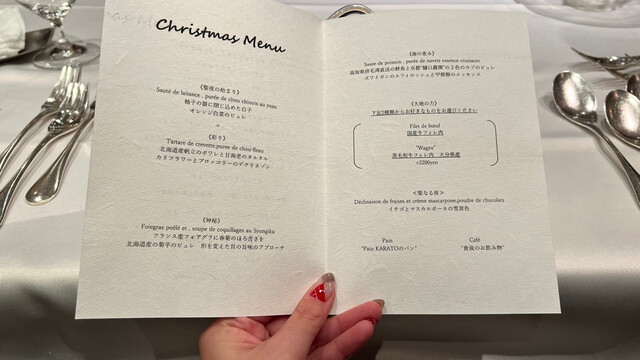 Christmas Menu
《聖夜の始まり》
Sauté de laitance , purée de chou chinois au yuzu
柚子の器に閉じ込めた白子
オレンジ白菜のピュレ
《彩り》
Tartare de crevette,puree de chou-fleau
北海道産帆立のポワレと甘海老のタルタル
カリフラワーとブロッコリーのデクリネゾン
《神秘》
Foiegras poêlé et , soupe de coquillages au Syungiku
フランス産フォアグラに春菊のほろ苦さを
《海の恵み》
Saute de poisson , purée de navets essence crustates
ズワイガニのエフィロッシェと甲殻類のエッセンス
《大地の力》
下記2種類からお好きなものをお選びください
Filet de bœuf
国産牛フィレ肉
"Wagyu"
黒毛和牛フィレ肉 大分県産
+2200yen
≪聖なる夜≫
Déclinaison de fraises et crème mascarpone,poudre de chocolats
イチゴとマスカルポーネの雪景色
Pain
"Pain KARATOのパン"
Café
"食後のお飲み物"